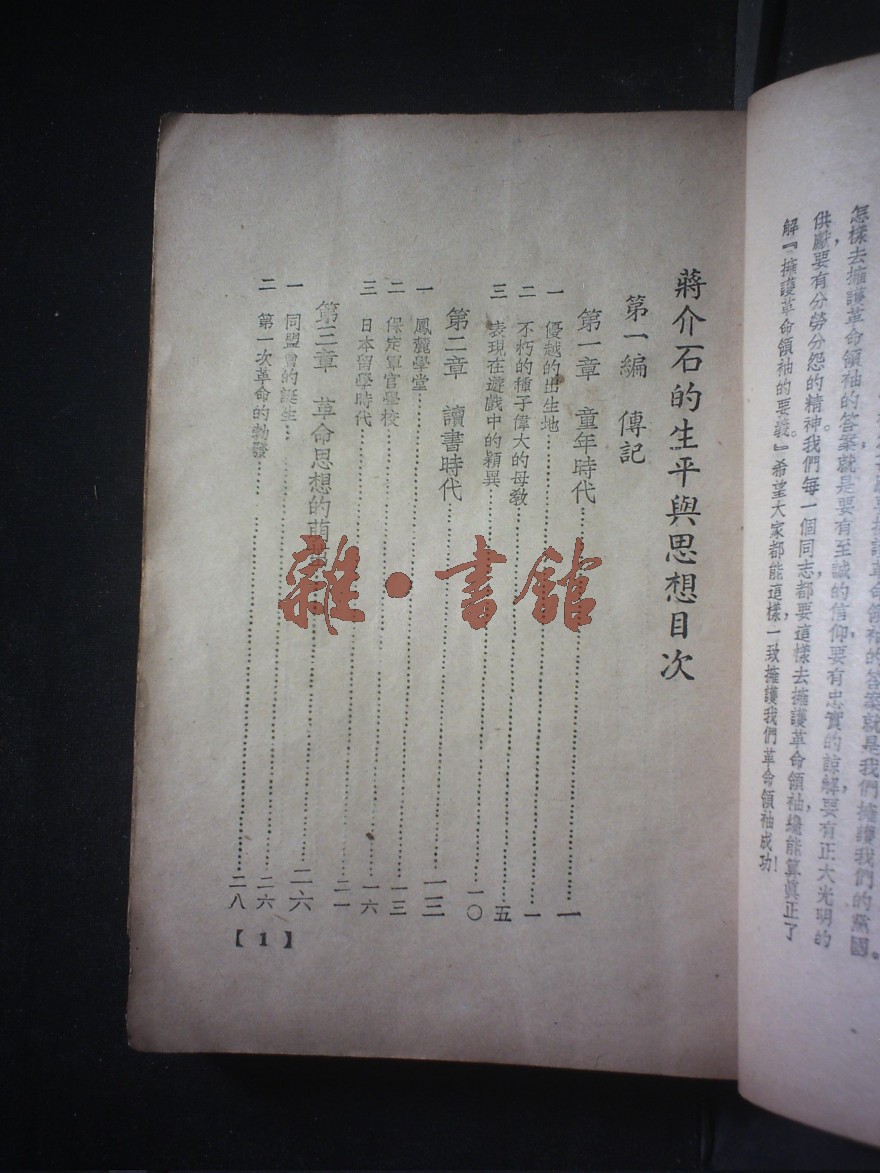 擁護革命領袖的答案就是我們擁護我們的黨國。
怎樣去擁護革命領袖的答案就是要有至誠的信仰，要有忠實的諒解，要有正大光明的
供獻，要有分勞分怨的精神。我們每一個同志都要這樣去擁護革命領袖，纔能算眞正了
解『擁護革命領袖的要義。』希望大家都能這樣一致擁護我們革命領袖成功！
蔣介石的生平與思想目次
第一編　傳記
第一章　童年時代……一
一　優越的出生地……一
二　不朽的種子偉大的母敎……五
三　表現在遊戲中的穎異……一〇
第二章　讀書時代……一三
一　鳳麓學堂……一三
二　保定軍官學校……一六
三　日本留學時代……二一
第三章　革命思想的萌……二六
一　同盟會的誕生……二六
二　第一次革命的勃發……二八
【1】
雜·書館